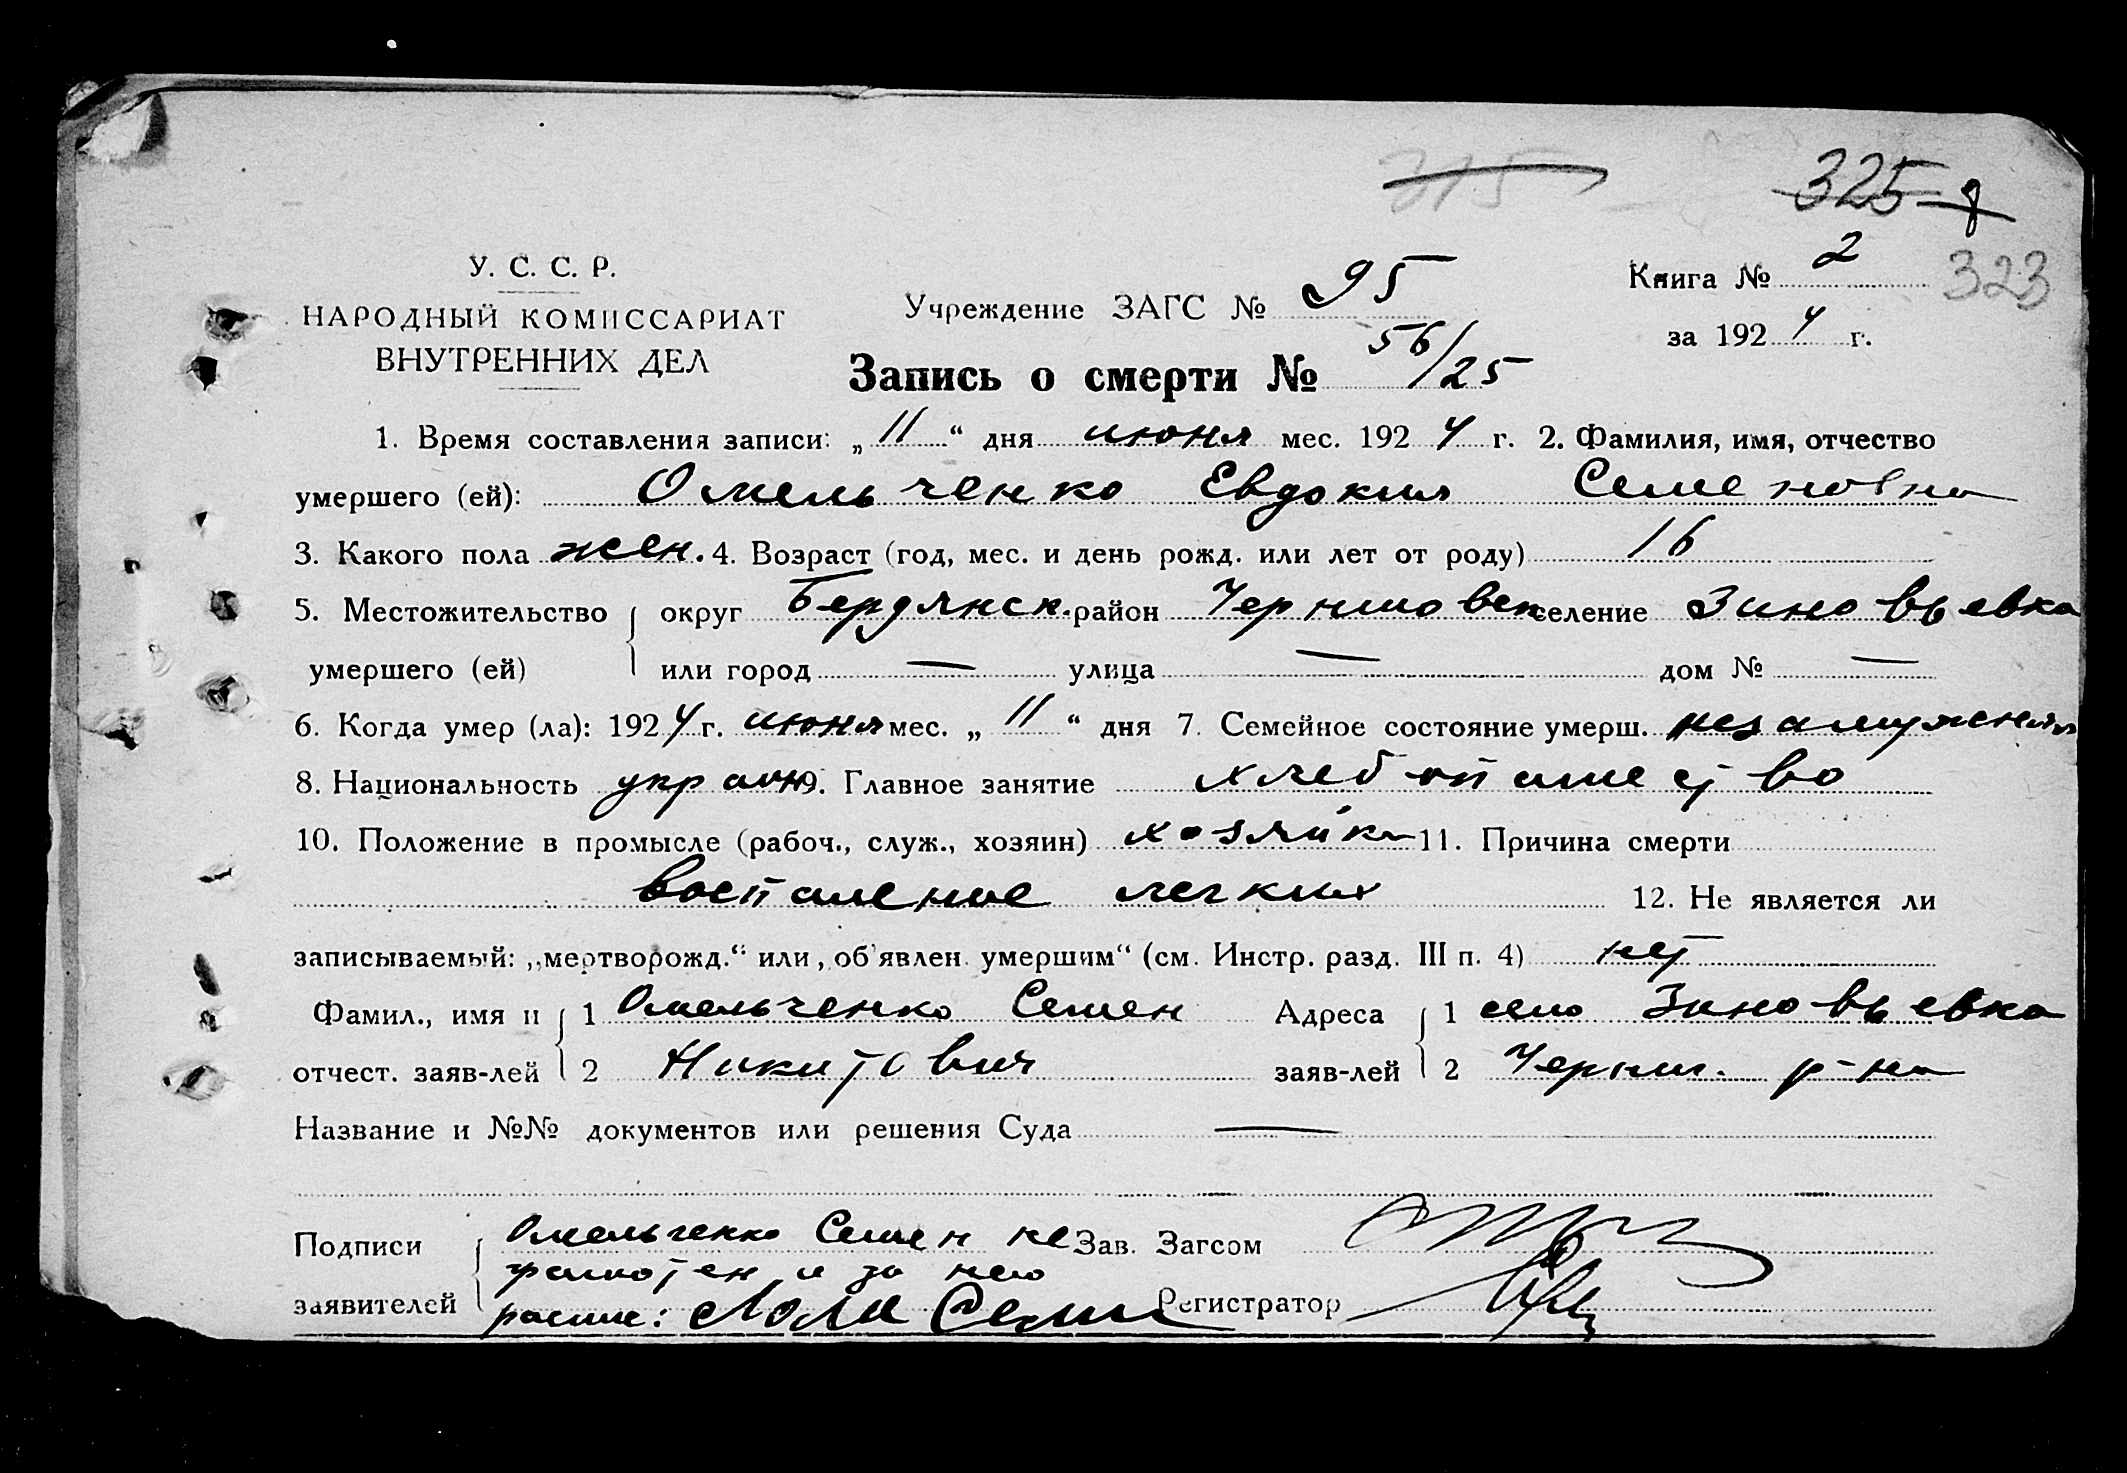 315
325
323
У. С. С. Р.
НАРОДНЫЙ КОМИССАРИАТ
ВНУТРЕННИХ ДЕЛ
Учреждение ЗАГС № 95
Книга № 2
за 1924 г.
Запись о смерти № 56/25
1. Время составления записи: „11“ дня июня мес. 1924 г. 2. Фамилия, имя, отчество
умершего (ей): Омельченко Евдокия Семеновна
3. Какого пола жен. 4. Возраст (год, мес. и день рожд. или лет от роду) 16
5. Местожительство округ Бердянск. район Черниговск селение Зиновьевка
умершего (ей) или город — улица — дом № —
6. Когда умер (ла): 1924 г. июня мес. „11“ дня 7. Семейное состояние умерш. незамужняя
8. Национальность украин 9. Главное занятие хлебопашество
10. Положение в промысле (рабоч., служ., хозяин) хозяйка 11. Причина смерти
воспаление легких 12. Не является ли
записываемый: „мертворожд.“ или „об'явлен умершим“ (см. Инстр. разд. III п. 4) нет
Фамил., имя и 1 Омельченко Семен Адреса 1 село Зиновьевка
отчест. заяв-лей 2 Никитович заяв-лей 2 Черниг. р-на
Название и №№ документов или решения Суда —
Подписи Омельченко Семен не Зав. Загсом
грамотен и за него
заявителей распис: Регистратор